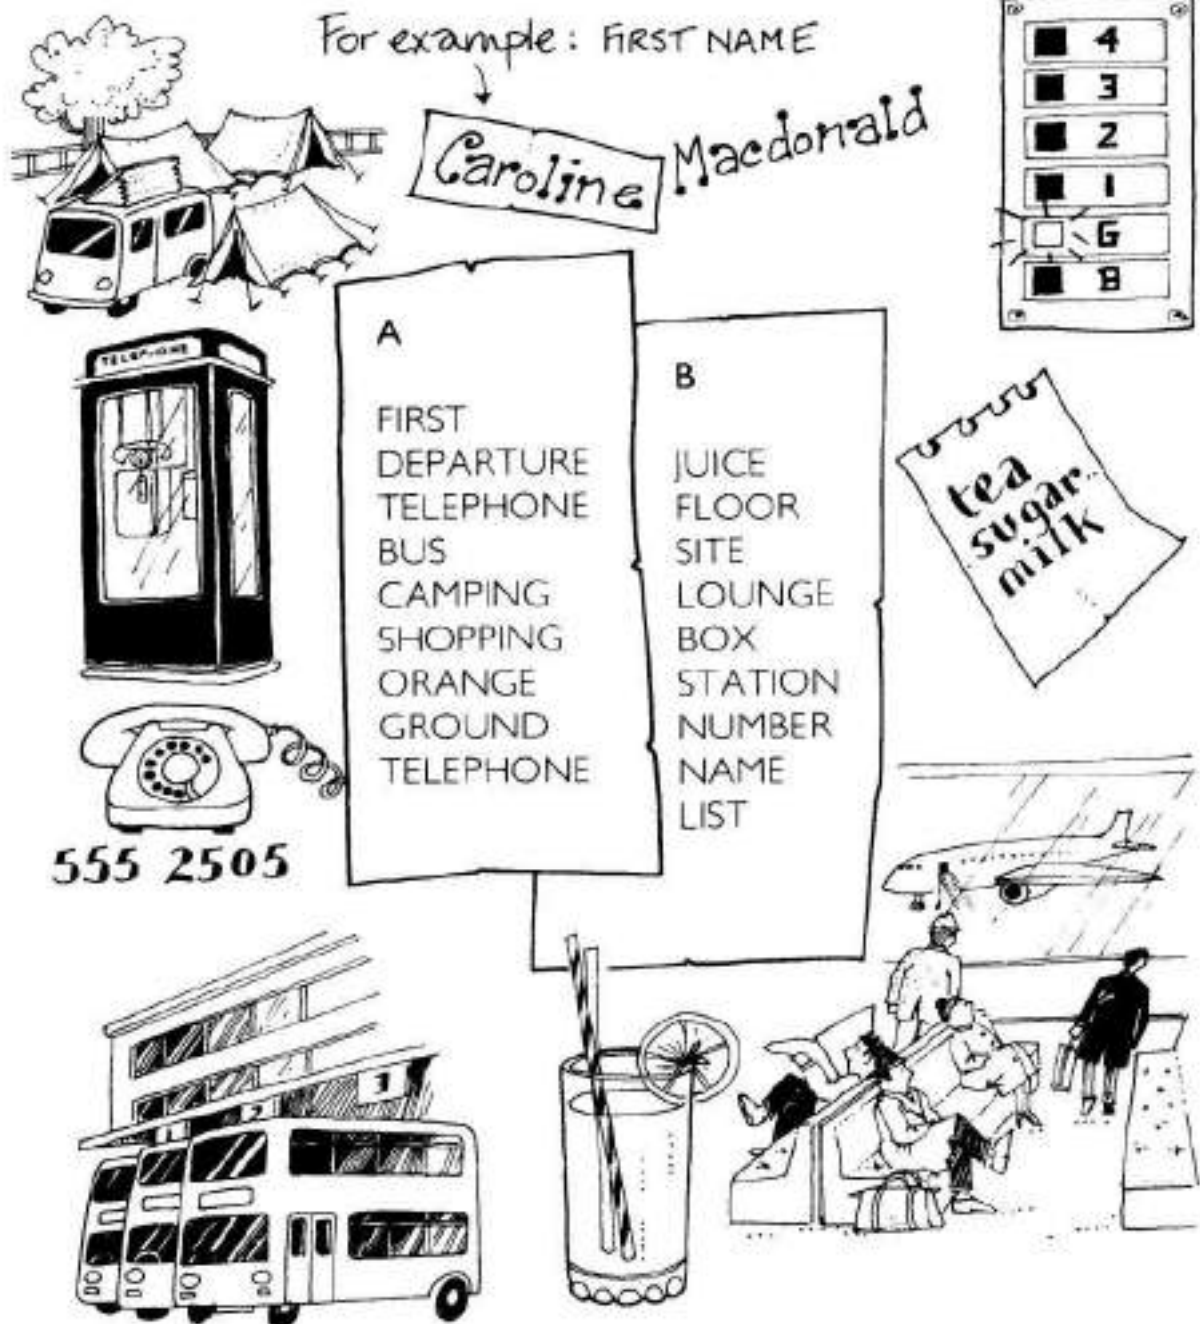 For example: FIRST NAME
Caroline Macdonald
4
3
2
1
G
B
TELEPHONE
A
FIRST
DEPARTURE
TELEPHONE
BUS
CAMPING
SHOPPING
ORANGE
GROUND
TELEPHONE
B
JUICE
FLOOR
SITE
LOUNGE
BOX
STATION
NUMBER
NAME
LIST
tea
sugar
milk
555 2505
3
2